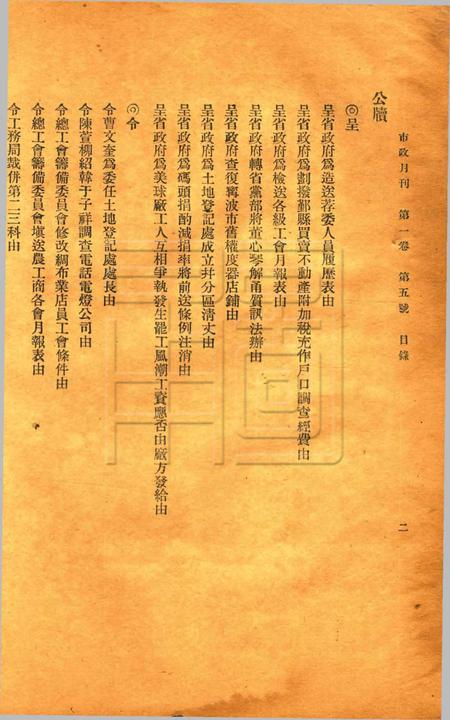 市政月刊　第一卷　第五號　目錄　二
公牘
◎呈
呈省政府爲造送荐委人員履歷表由
呈省政府爲劃撥鄞縣買賣不動產附加稅充作戶口調查經費由
呈省政府爲檢送各級工會月報表由
呈省政府轉省黨部將董心琴解甬質訊法辦由
呈省政府查復寗波市舊權度器店鋪由
呈省政府爲土地登記處成立幷分區清丈由
呈省政府爲碼頭捐酌減捐率將前送條例注消由
呈省政府爲美球廠工人互相爭執發生罷工風潮工資應否由廠方發給由
◎令
令曹文奎爲委任土地登記處處長由
令陳萱柳紹韓于子祥調查電話電燈公司由
令總工會籌備委員會修改綢布業店員工會條件由
令總工會籌備委員會塡送農工商各會月報表由
令工務局裁併第二三科由